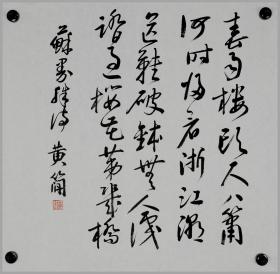 春雨楼头尺八箫
何时归看浙江潮
芒鞋破钵無人識
踏过樱花第几橋
蘇曼殊诗 黄简